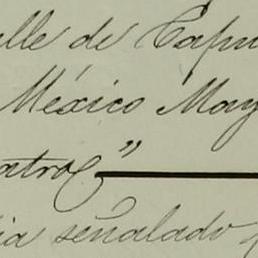 lle de Capu
México May
atro"
ia señalado